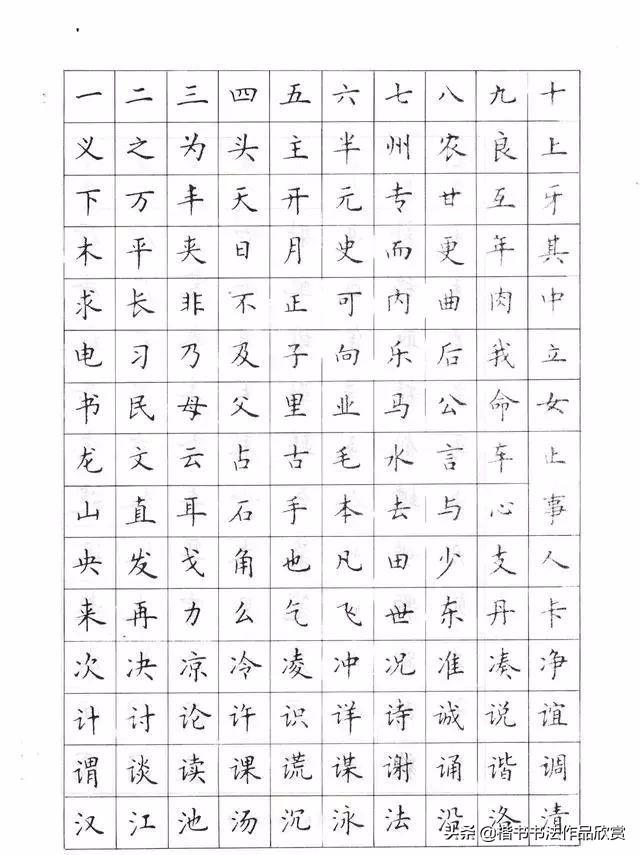 一二三四五六七八九十
义之为头主半州农良上
下万丰天开元专甘互牙
木平夹日月史而更年其
求长非不正可内曲肉中
电习乃及子向乐后我立
书民母父里业马公命女
龙文云占古毛水言车止
山直耳石手本去与心事
央发戈角也凡田少支人
来再力么气飞世东丹卡
次决凉冷凌冲况准凑净
计讨论许识详诗诚说谊
谓谈读课谎谋谢诵谐调
汉江池汤沉泳法洛清
头条@楷书书法作品欣赏